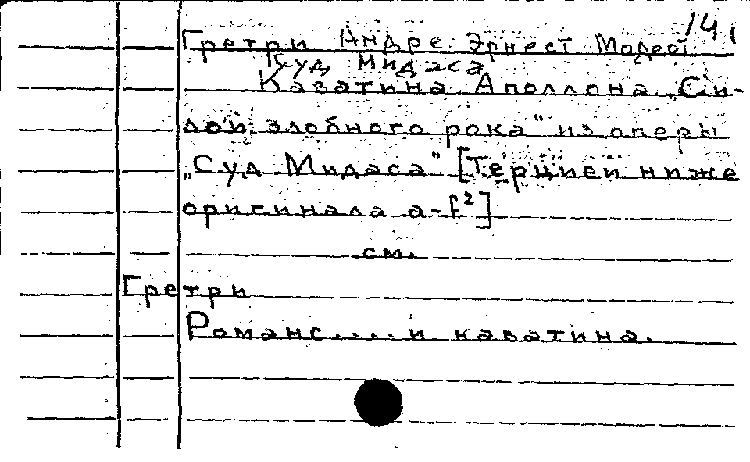 141
Гретри Андре Эрнест Модест
Суд Мидаса
Каватина Аполлона „Си-
лой злобного рока" из оперы
„Суд Мидаса" [Терцией ниже
оригинала a-f²]
см.
Гретри
Романс.... и каватина.